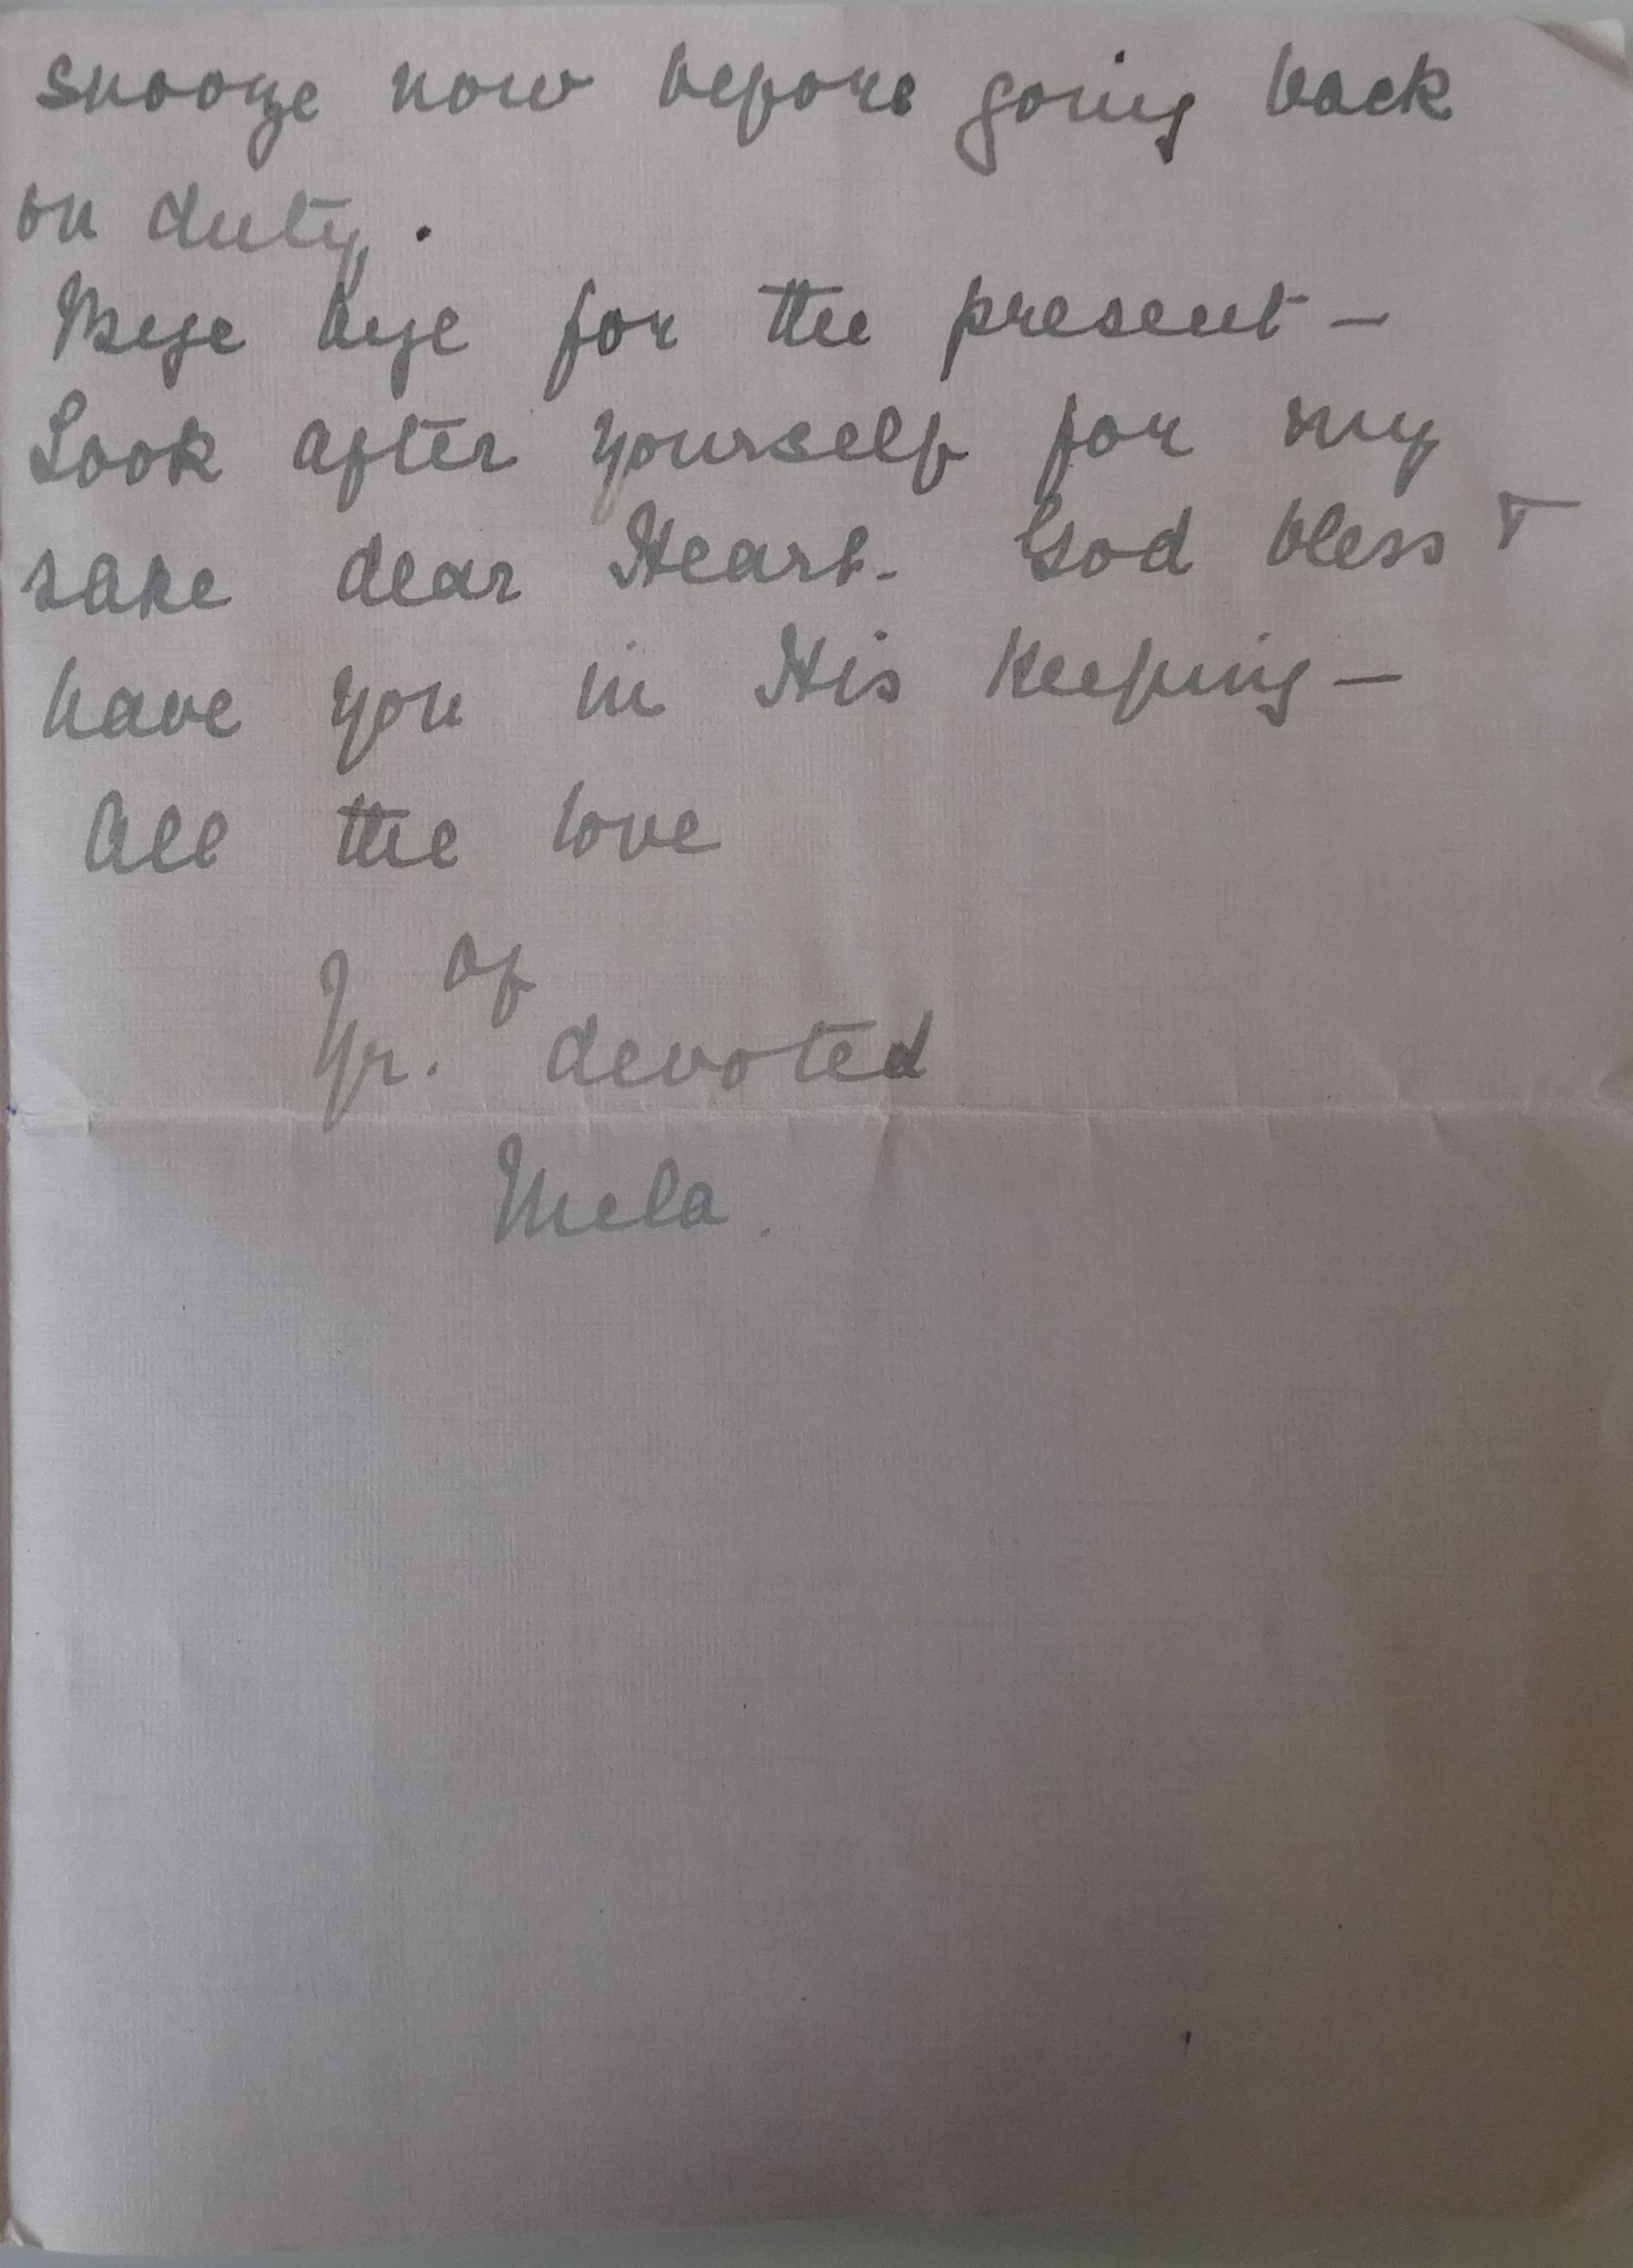 snooze now before going back
on duty.
Bye bye for the present —
Look after yourself for my
sake dear Heart. God bless +
have you in His Keeping —
All the love
of
Yr. devoted
Mela.